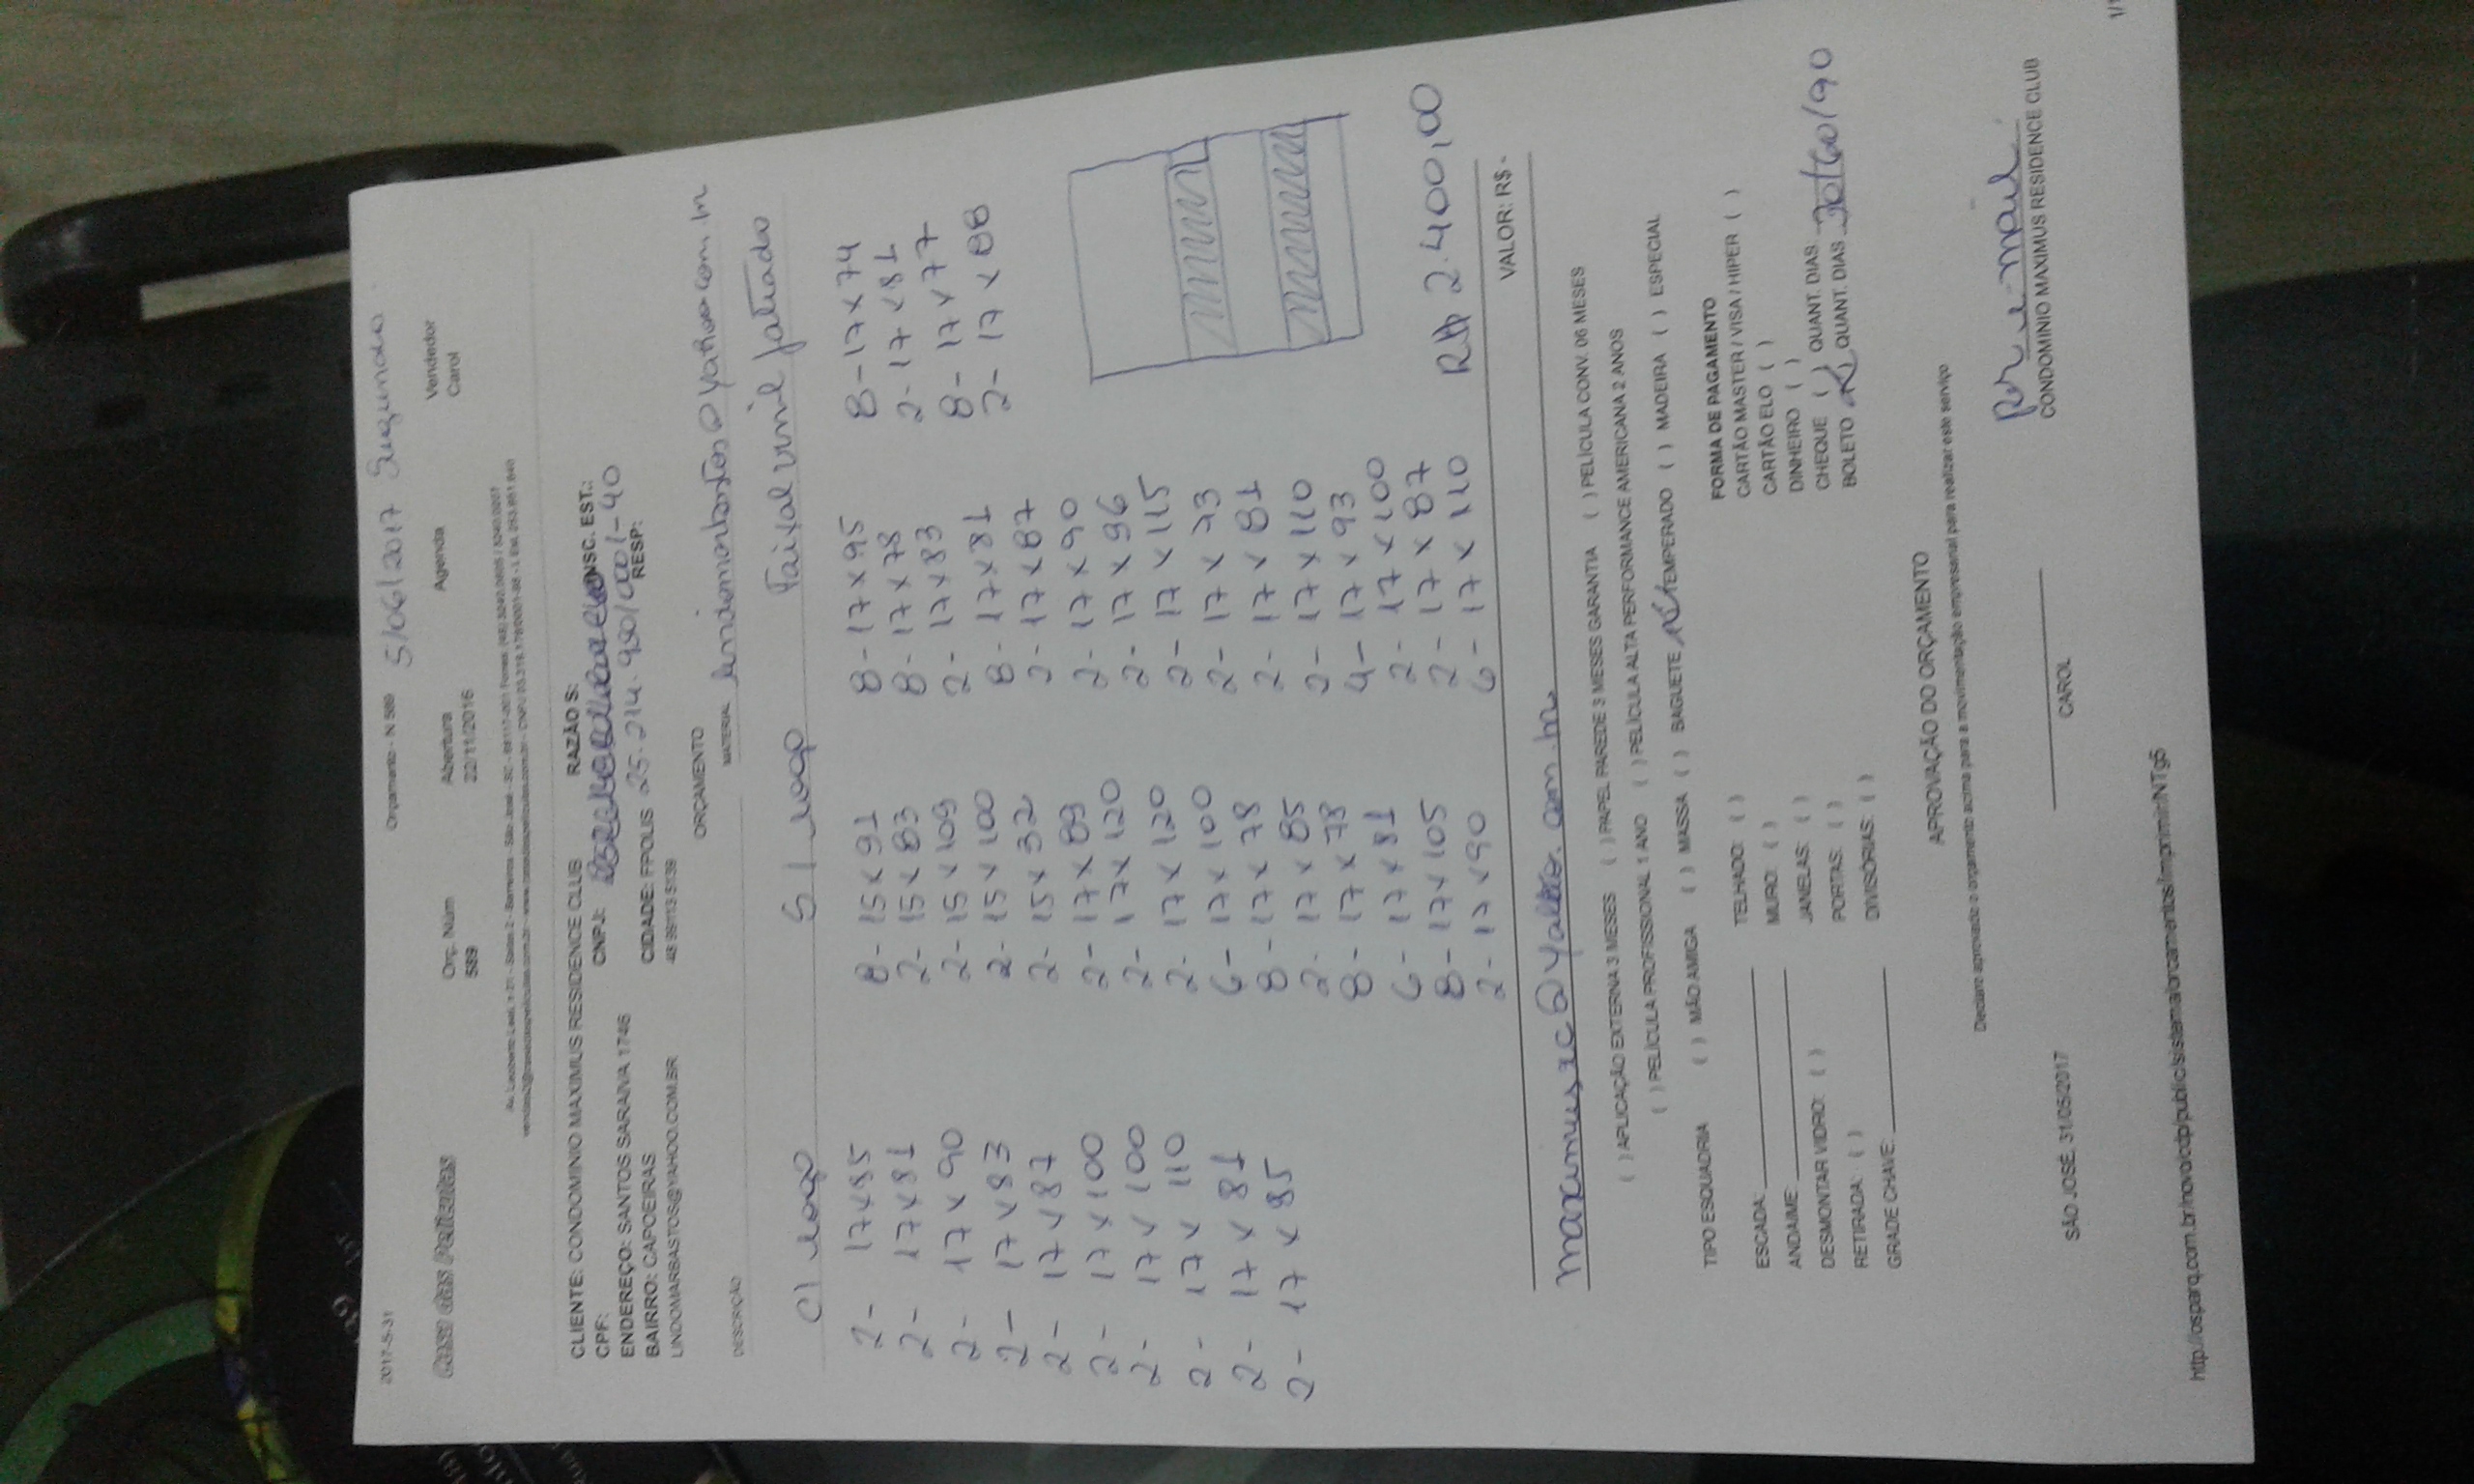 2017-5-31 Orçamento - N 589 5/06/2017 Segunda
Casa das Películas Orç. Núm Abertura Agenda Vendedor
589 22/11/2016 Carol
CLIENTE: CONDOMINIO MAXIMUS RESIDENCE CLUB RAZÃO S:
CPF: CNPJ: INSC. EST.:
25.214.950/0001-40
ENDEREÇO: SANTOS SARAIVA 1746
BAIRRO: CAPOEIRAS CIDADE: FPOLIS RESP:
LINDOMARBASTOS@YAHOO.COM.BR
ORÇAMENTO
DESCRIÇÃO MATERIAL lindomarbastos@yahoo.com.br
C/ vão S/ vão Faixa vinil jateado
2- 17x85 8-15x91 8-17x95 8-17x74
2- 17x81 2-15x83 8-17x78 2-17x81
2- 17x90 2-15x109 2-17x83 8-17x77
2- 17x83 2-15x100 8-17x81 2-17x88
2- 17x87 2-15x32 2-17x87
2- 17x100 2-17x89 2-17x90
2- 17x100 2-17x120 2-17x96
2- 17x110 2-17x120 2-17x115
2- 17x81 6-17x100 2-17x73
2- 17x85 8-17x78 2-17x81
2-17x85 2-17x110
8-17x78 4-17x93
6-17x81 2-17x100
8-17x105 2-17x87
2-17x90 6-17x110 R$ 2.400,00
VALOR: R$ -
( ) APLICAÇÃO EXTERNA 3 MESES ( ) PAPEL PAREDE 3 MESES GARANTIA ( ) PELÍCULA CONV. 06 MESES
( ) PELÍCULA PROFISSIONAL 1 ANO ( ) PELÍCULA ALTA PERFORMANCE AMERICANA 2 ANOS
TIPO ESQUADRIA ( ) MÃO AMIGA ( ) MASSA ( ) BAGUETE TEMPERADO ( ) MADEIRA ( ) ESPECIAL
ESCADA: TELHADO: ( )
ANDAIME: MURO: ( )
DESMONTAR VIDRO: ( ) JANELAS: ( )
RETIRADA: ( ) PORTAS: ( )
GRADE CHAVE: DIVISÓRIAS: ( )
FORMA DE PAGAMENTO
CARTÃO MASTER / VISA / HIPER ( )
CARTÃO ELO ( )
DINHEIRO ( )
CHEQUE ( ) QUANT. DIAS
BOLETO QUANT. DIAS 30/60/90
APROVAÇÃO DO ORÇAMENTO
Declaro aprovado o orçamento acima para a movimentação empresarial para realizar este serviço
por e-mail
SÃO JOSÉ, 31/05/2017 CAROL CONDOMINIO MAXIMUS RESIDENCE CLUB